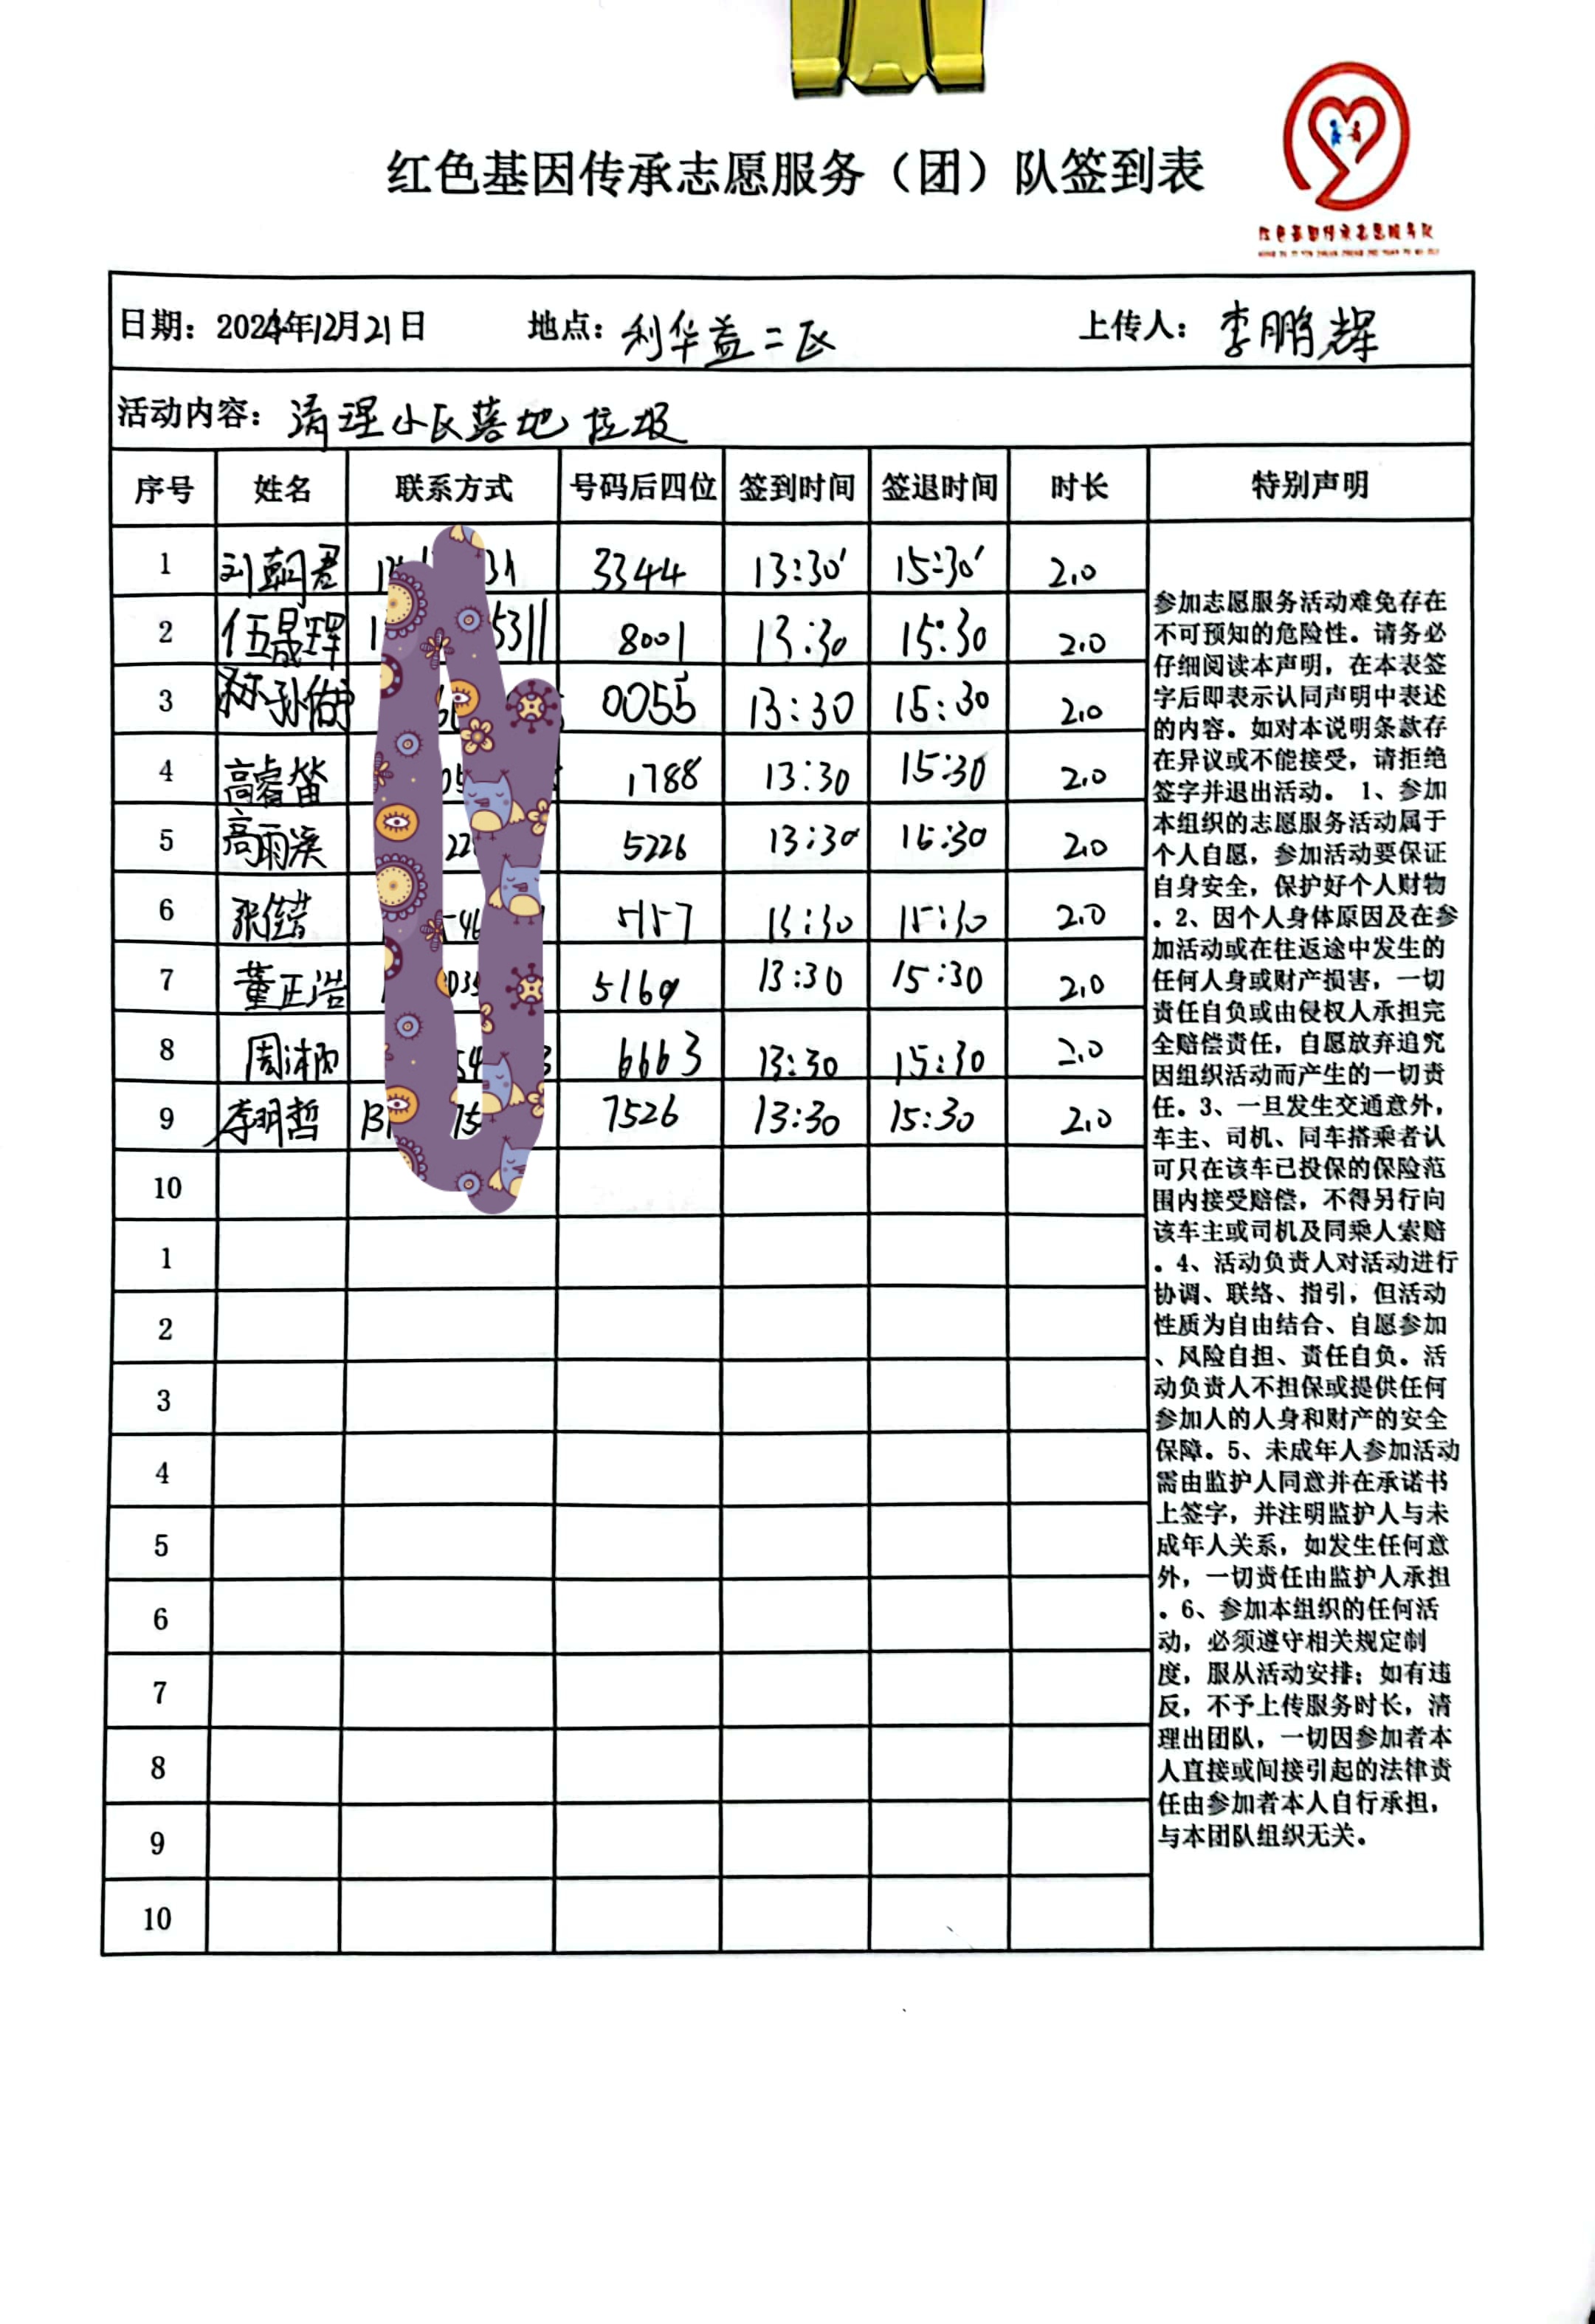 红色基因传承志愿服务（团）队签到表
红色基因传承志愿服务队
日期：2024年12月21日 地点：利华益二区 上传人：李鹏辉
活动内容：清理小区落地垃圾
序号 姓名 联系方式 号码后四位 签到时间 签退时间 时长 特别声明
1 刘朝君 3344 13:30 15:30 2.0
2 伍晟晖 5311 8001 13:30 15:30 2.0
3 0055 13:30 15:30 2.0
4 高睿 1788 13:30 15:30 2.0
5 高雨溪 5226 13:30 15:30 2.0
6 张佳 5157 13:30 15:30 2.0
7 董正浩 5169 13:30 15:30 2.0
8 周 6663 13:30 15:30 2.0
9 李明哲 7526 13:30 15:30 2.0
10
1
2
3
4
5
6
7
8
9
10
参加志愿服务活动难免存在
不可预知的危险性。请务必
仔细阅读本声明，在本表签
字后即表示认同声明中表述
的内容。如对本说明条款存
在异议或不能接受，请拒绝
签字并退出活动。 1、参加
本组织的志愿服务活动属于
个人自愿，参加活动要保证
自身安全，保护好个人财物
。2、因个人身体原因及在参
加活动或在往返途中发生的
任何人身或财产损害，一切
责任自负或由侵权人承担完
全赔偿责任，自愿放弃追究
因组织活动而产生的一切责
任。3、一旦发生交通意外，
车主、司机、同车搭乘者认
可只在该车已投保的保险范
围内接受赔偿，不得另行向
该车主或司机及同乘人索赔
。4、活动负责人对活动进行
协调、联络、指引，但活动
性质为自由结合、自愿参加
、风险自担、责任自负。活
动负责人不担保或提供任何
参加人的人身和财产的安全
保障。5、未成年人参加活动
需由监护人同意并在承诺书
上签字，并注明监护人与未
成年人关系，如发生任何意
外，一切责任由监护人承担
。6、参加本组织的任何活
动，必须遵守相关规定制
度，服从活动安排；如有违
反，不予上传服务时长，清
理出团队，一切因参加者本
人直接或间接引起的法律责
任由参加者本人自行承担，
与本团队组织无关。